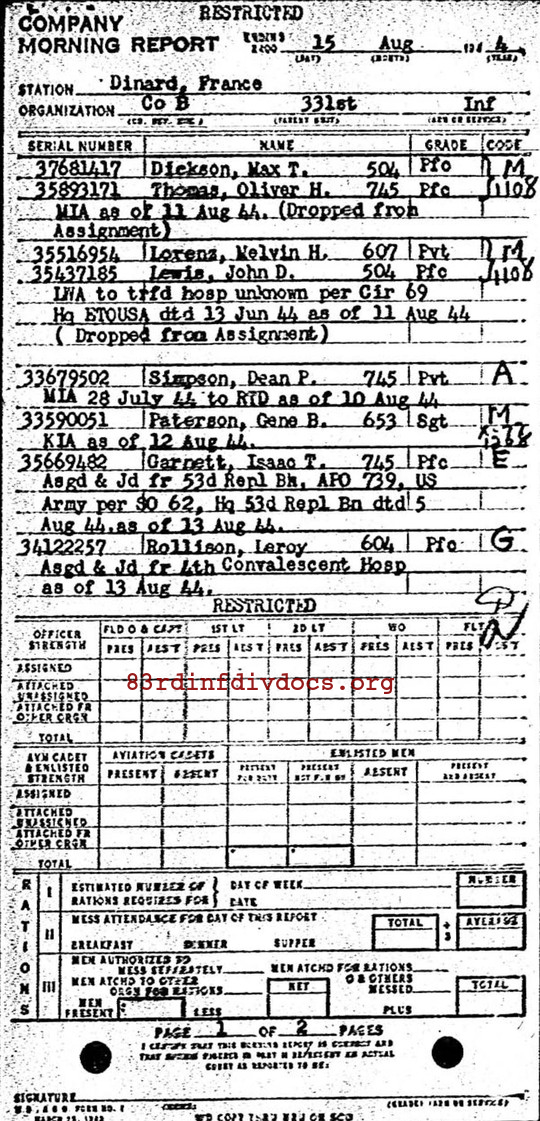 RESTRICTED
COMPANY
MORNING REPORT ENDING 2400 15 Aug 194 4
(DAY) (MONTH) (YEAR)
STATION Dinard, France
ORGANIZATION Co B 331st Inf
(PARENT UNIT) (ARM OR SERVICE)
SERIAL NUMBER NAME GRADE CODE
37681417 Dickson, Max T. 504 Pfc M
35893171 Thomas, Oliver H. 745 Pfc 1108
MIA as of 11 Aug 44. (Dropped from
Assignment)
35516954 Lorenz, Melvin H. 607 Pvt M
35437185 Lewis, John D. 504 Pfc 1108
LWA to trfd hosp unknown per Cir 69
Hq ETOUSA dtd 13 Jun 44 as of 11 Aug 44
( Dropped from Assignment)
33679502 Simpson, Dean P. 745 Pvt A
MIA 28 July 44 to RTD as of 10 Aug 44
33590051 Paterson, Gene B. 653 Sgt M
KIA as of 12 Aug 44.
35669482 Garnett, Isaac T. 745 Pfc E
Asgd & Jd fr 53d Repl Bn, APO 739, US
Army per SO 62, Hq 53d Repl Bn dtd 5
Aug 44.as of 13 Aug 44.
34122257 Rollison, Leroy 604 Pfc G
Asgd & Jd fr 4th Convalescent Hosp
as of 13 Aug 44.
RESTRICTED
OFFICER STRENGTH FLD O & CAPT 1ST LT 2D LT WO FLT
PRES ABST PRES ABST PRES ABST PRES ABST PRES ABST
ASSIGNED
ATTACHED UNASSIGNED
83rdinfdivdocs.org
ATTACHED FR OTHER ORGN
TOTAL
AVN CADET & ENLISTED STRENGTH AVIATION CADETS ENLISTED MEN
PRESENT ABSENT PRESENT FOR DUTY PRESENT NOT FOR DY ABSENT PRESENT AND ABSENT
ASSIGNED
ATTACHED UNASSIGNED
ATTACHED FR OTHER ORGN
TOTAL
RATIONS
I ESTIMATED NUMBER OF RATIONS REQUIRED FOR DAY OF WEEK DATE NUMBER
II MESS ATTENDANCE FOR DAY OF THIS REPORT TOTAL ÷ 3 AVERAGE
BREAKFAST DINNER SUPPER
III MEN AUTHORIZED TO MESS SEPARATELY MEN ATCHD FOR RATIONS
MEN ATCHD TO OTHER ORGN FOR RATIONS NET & OTHERS MESSED TOTAL
MEN PRESENT LESS PLUS
PAGE 1 OF 2 PAGES
I CERTIFY THAT THIS MORNING REPORT IS CORRECT AND
SIGNATURE
(GRADE) (ARM OR SERVICE)
W.D., A G O FORM NO. 1
MARCH 1943